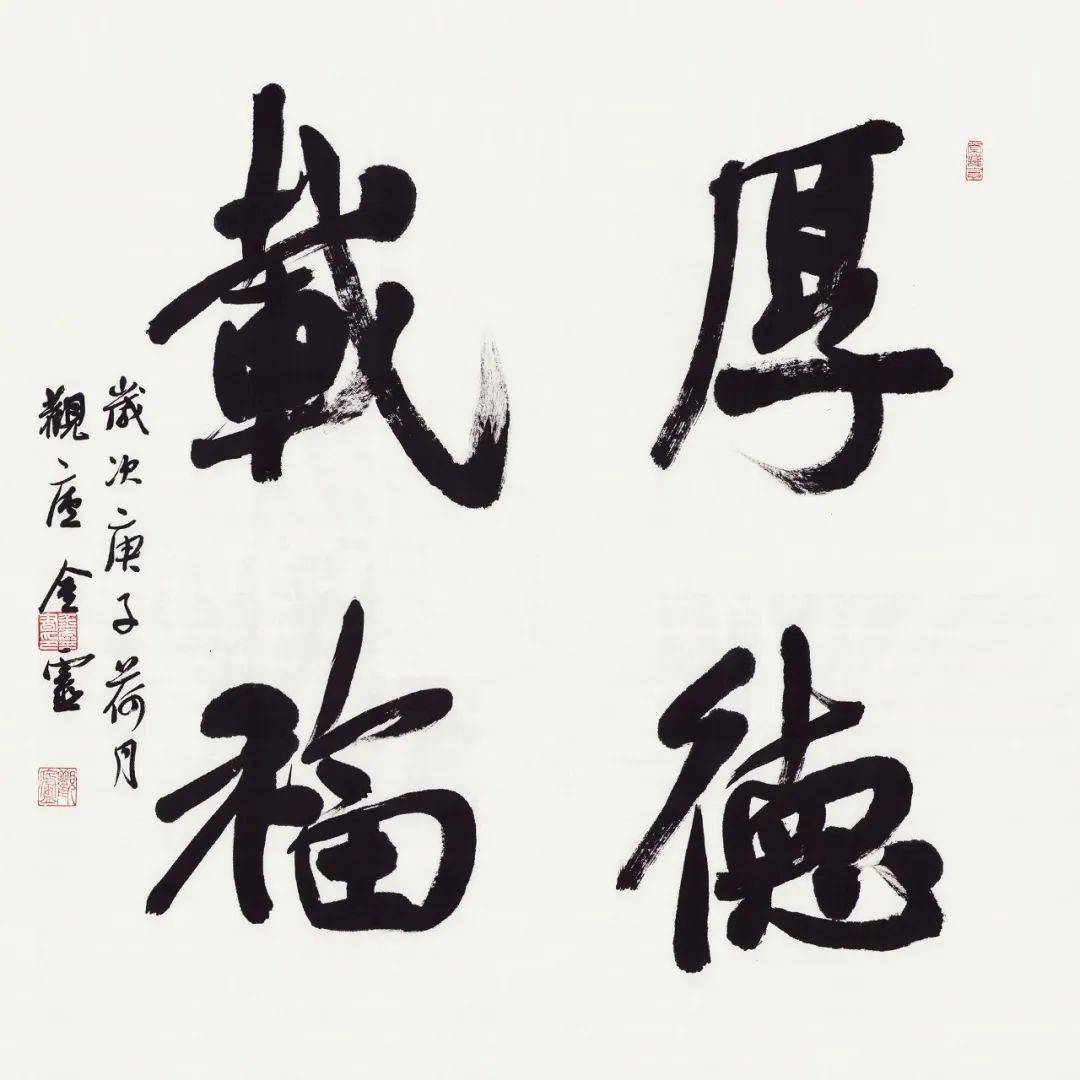 厚德
載福
歲次庚子荷月
觀廬金靈